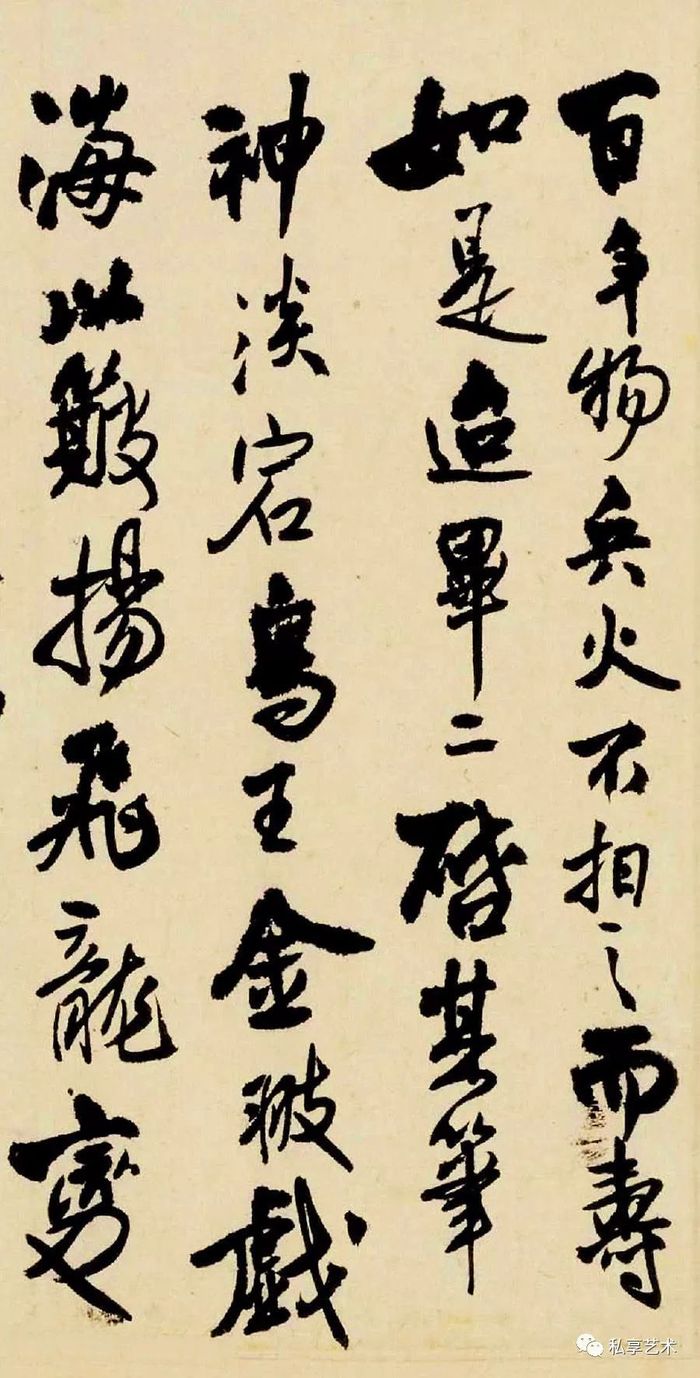 百年物兵火不之而壽
如是迨畢二啓其筆
神淡宕鳥王金翅戲
海以簸揚飛龍變
私享艺术